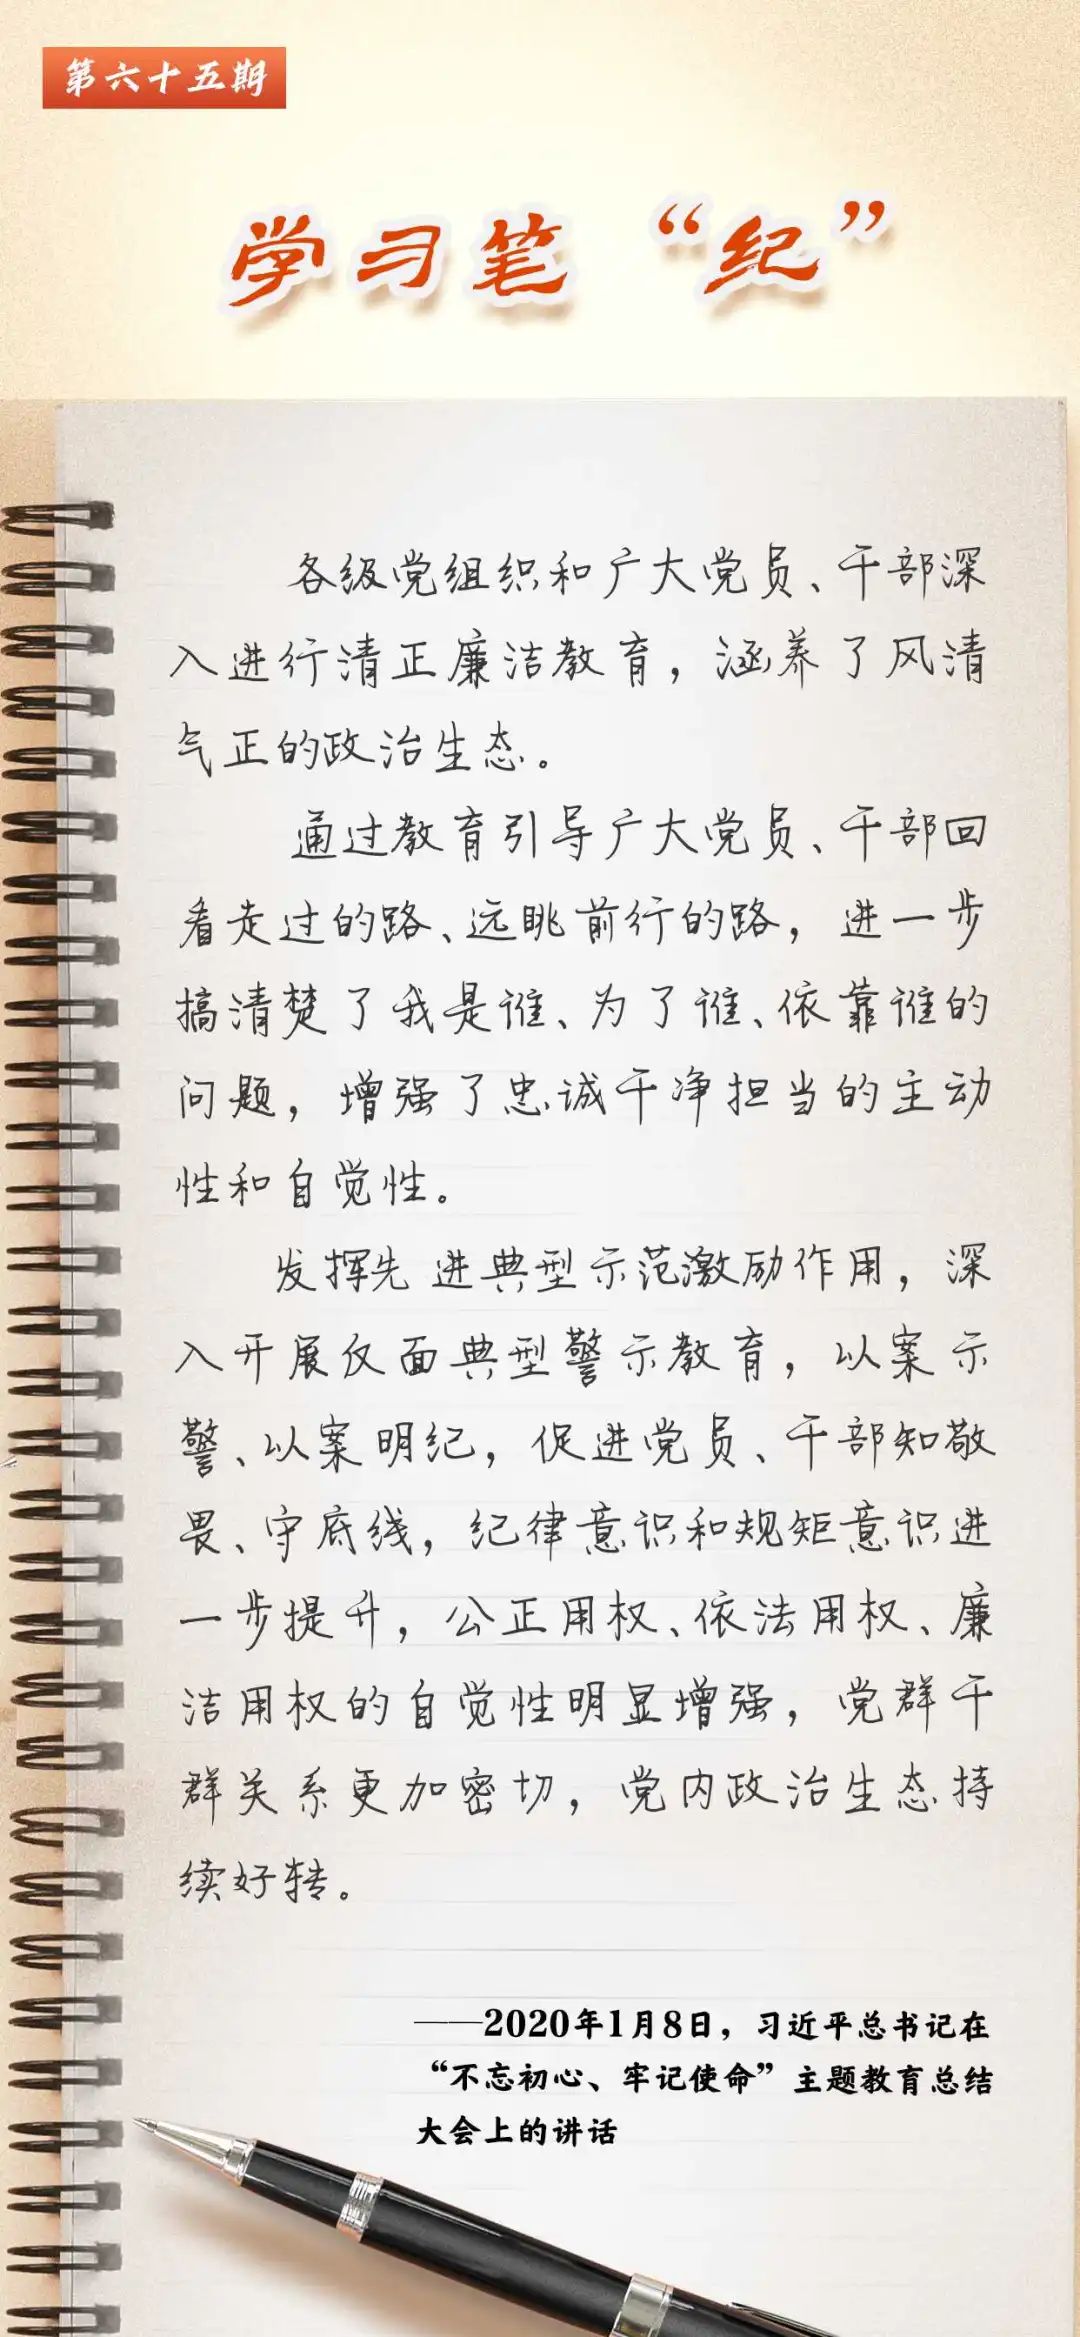 第六十五期
学习笔“纪”
各级党组织和广大党员、干部深
入进行清正廉洁教育，涵养了风清
气正的政治生态。
通过教育引导广大党员、干部回
看走过的路、远眺前行的路，进一步
搞清楚了我是谁、为了谁、依靠谁的
问题，增强了忠诚干净担当的主动
性和自觉性。
发挥先进典型示范激励作用，深
入开展反面典型警示教育，以案示
警、以案明纪，促进党员、干部知敬
畏、守底线，纪律意识和规矩意识进
一步提升，公正用权、依法用权、廉
洁用权的自觉性明显增强，党群干
群关系更加密切，党内政治生态持
续好转。
——2020年1月8日，习近平总书记在
“不忘初心、牢记使命”主题教育总结
大会上的讲话